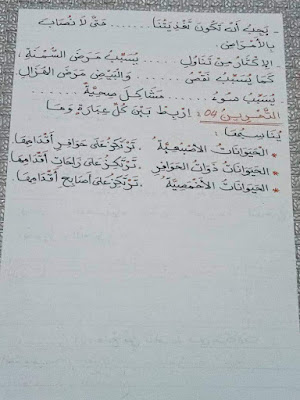 - يَجِبُ أَنْ تَكُونَ تَغْذِيَتُنَا ........ حَتَّى لَا نُصَابَ
بِالأَمْرَاضِ.
- الإِكْثَارُ مِنْ تَنَاوُلِ ....... يُسَبِّبُ مَرَضَ السُّمْنَةِ،
كَمَا يُسَبِّبُ نَقْصُ ....... وَالبَيْضِ مَرَضَ الهُزَالِ.
- يُسَبِّبُ سُوءُ ....... مَشَاكِلَ صِحِّيَّةً
التَّمْرِين 04: اُرْبُطْ بَيْنَ كُلِّ عِبَارَةٍ وَمَا
يُنَاسِبُهَا:
* الحَيَوَانَاتُ الأُصْبُعِيَّةُ . . تَرْتَكِزُ عَلَى حَوَافِرِ أَقْدَامِهَا
* الحَيَوَانَاتُ ذَوَاتُ الحَوَافِرِ . . تَرْتَكِزُ عَلَى رَاحَاتِ أَقْدَامِهَا
* الحَيَوَانَاتُ الأَخْمَصِيَّةُ . . تَرْتَكِزُ عَلَى أَصَابِعِ أَقْدَامِهَا.